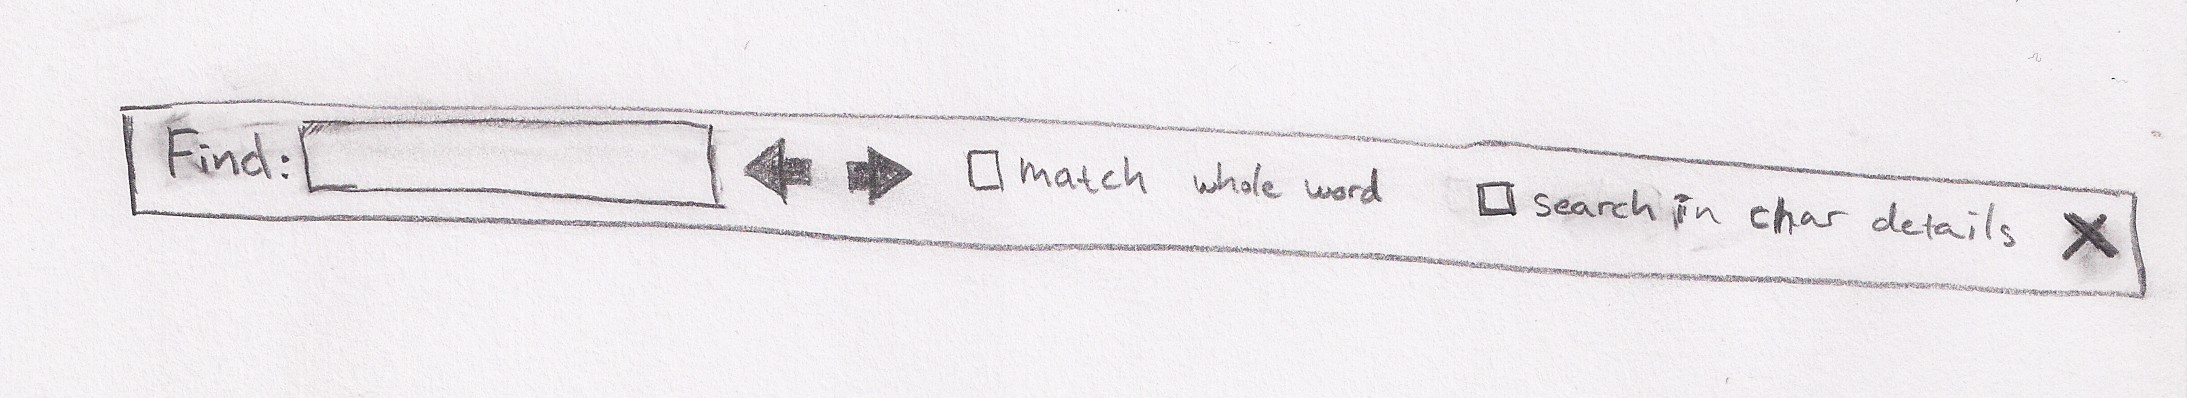 Find: match whole word search in char details